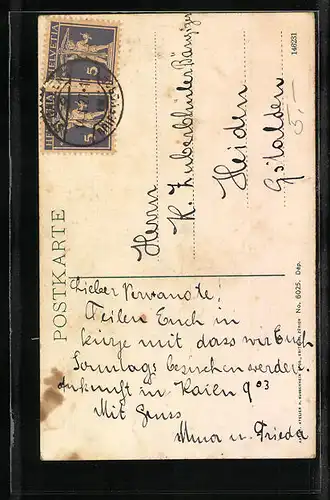 HELVETIA 5
HELVETIA 5
POSTKARTE
146231
Herrn
K. Zuberbühler Bänziger
Heiden
Gstalden
5.–
Lieber Verwandte!
Teilen Euch in
kürze mit dass wir Euch
Sonntags besuchen werden.
Ankunft in Kaien 9 03
Mit Gruss
Mina u. Frieda
No. 6025. Dep.